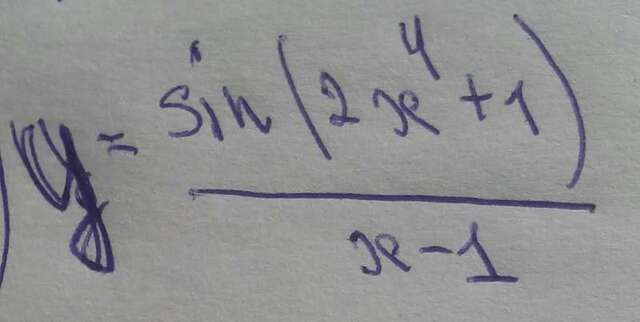 y = sin(2x⁴+1) / x-1